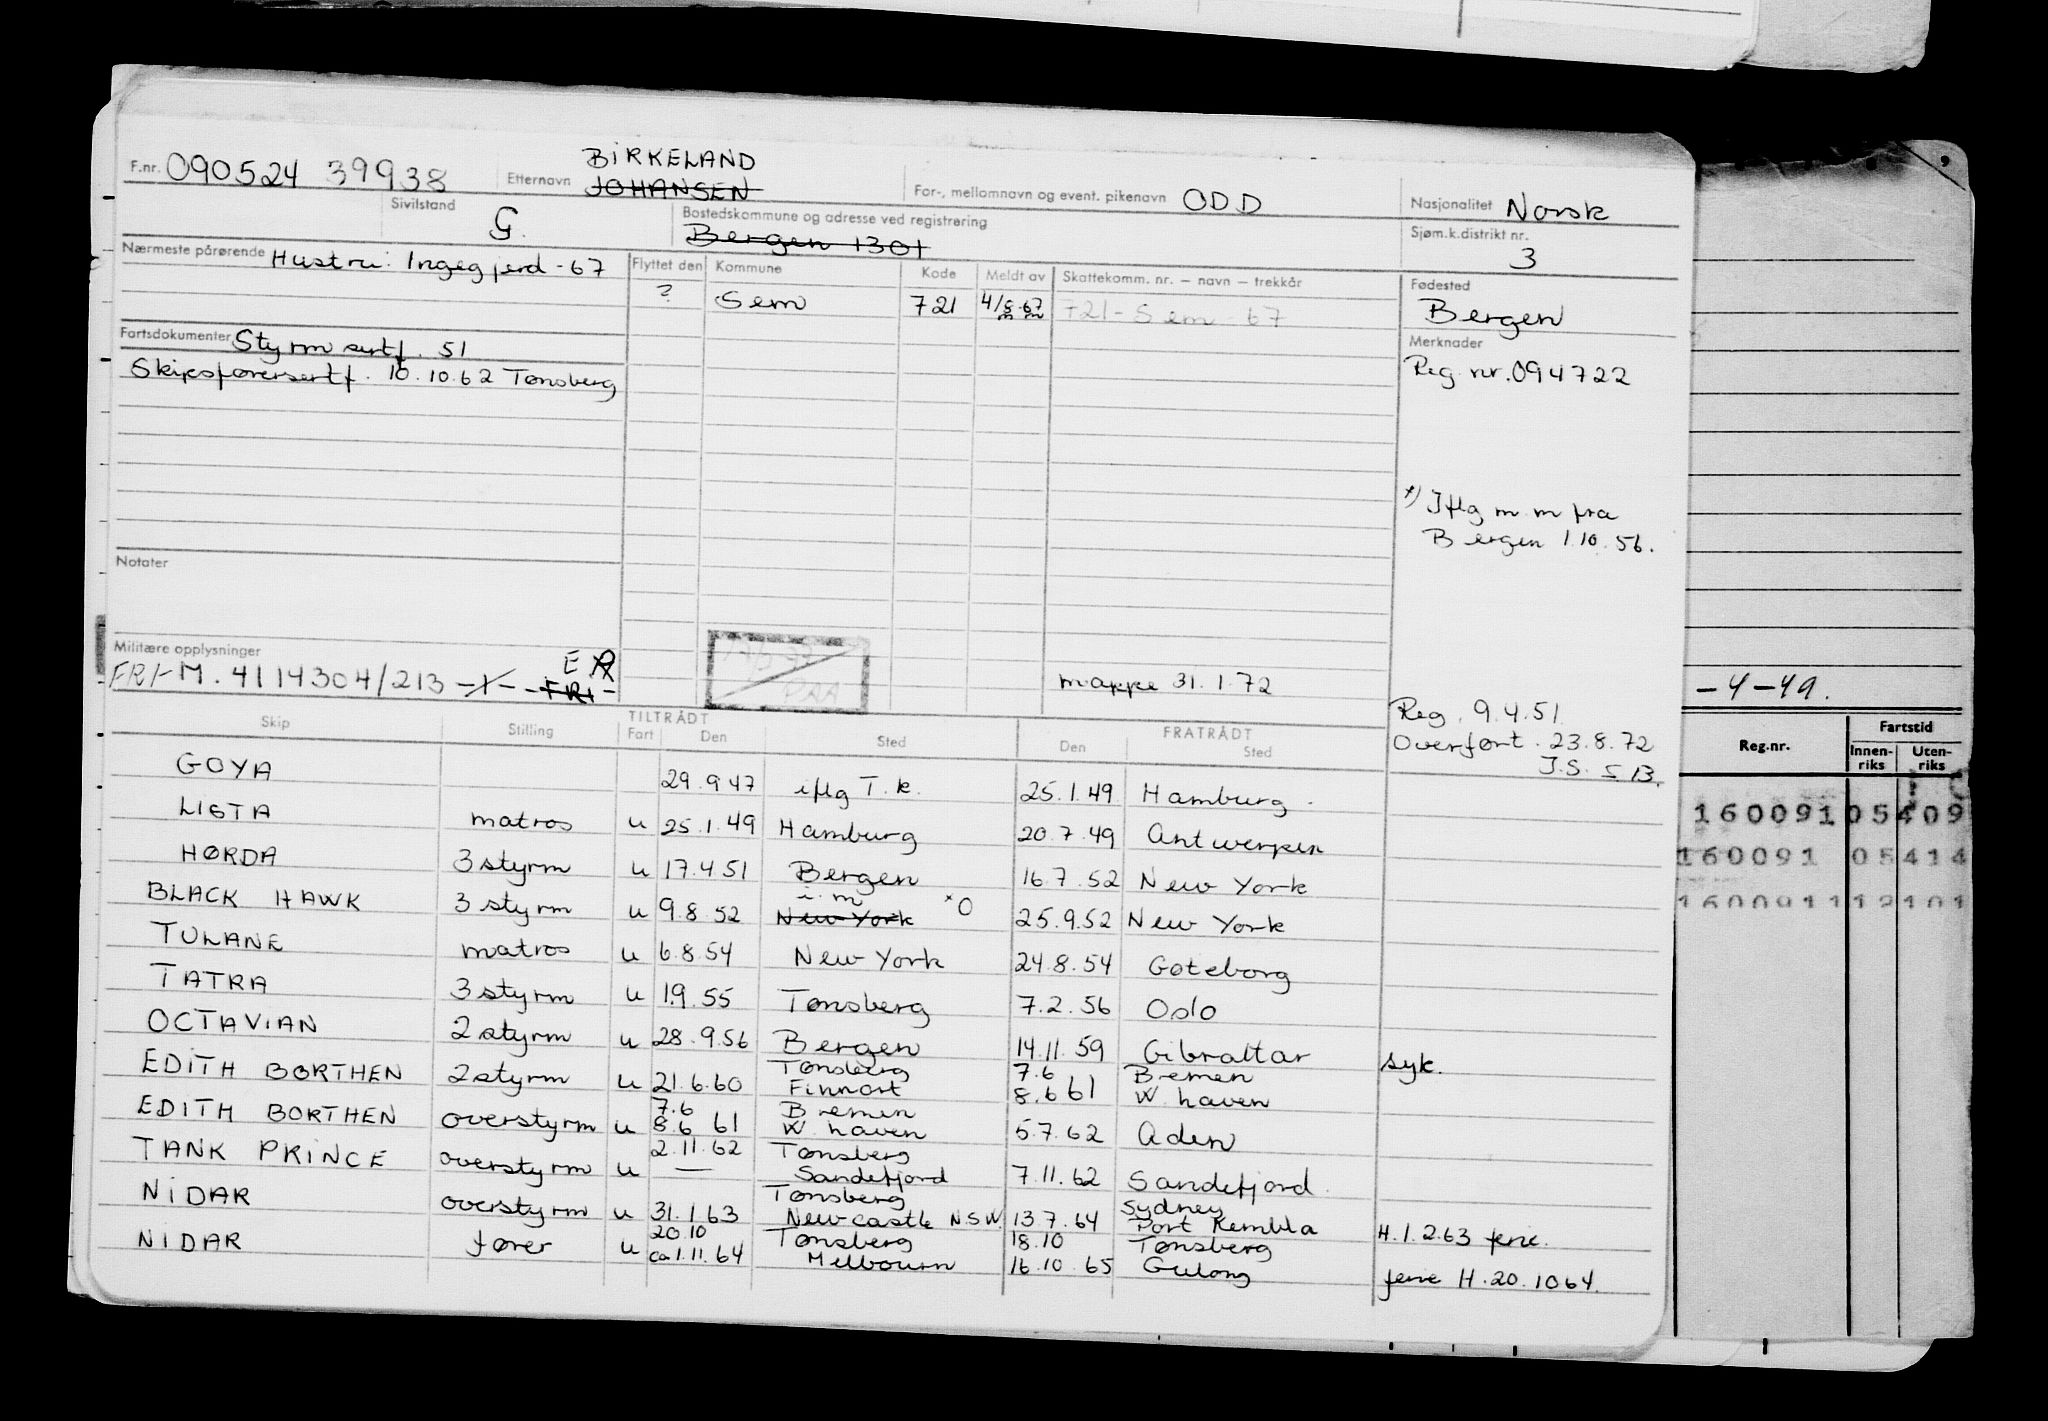 F.nr. 090524 39938 Etternavn BIRKELAND JOHANSEN For-, mellomnavn og event. pikenavn ODD Nasjonalitet Norsk
Sivilstand G. Bostedskommune og adresse ved registrering Bergen 1301 Sjøm.k.distrikt nr. 3
Nærmeste pårørende Hustru: Ingegjerd -67 Flyttet den Kommune Kode Meldt av Skattekomm. nr. – navn – trekkår Fødested
? Sem 721 4/5-67 721 - Sem - 67 Bergen
Fartsdokumenter Styrm sertf. 51 Merknader
Skipsførersertf. 10.10.62 Tønsberg Reg. nr. 094722
*) Iflg m.m fra
Bergen 1.10.56.
Notater
Militære opplysninger E
FRI- M. 4114304/213 FRI mappe 31.1.72
Reg. 9.4.51
Overført. 23.8.72
J.S. S 13.
-4-49.
Skip Stilling TILTRÅDT Fart Den Sted FRATRÅDT Den Sted
Reg.nr. Fartstid Innen-riks Uten-riks
GOYA 29.9 47 iflg T.k. 25.1.49 Hamburg.
LISTA matros u 25.1.49 Hamburg 20.7.49 Antwerpen
HØRDA 3 styrm u 17.4 51 Bergen 16.7.52 New York
BLACK HAWK 3 styrm u 9.8.52 i.m New York *O 25.9.52 New York
TULANE matros u 6.8.54 New York 24.8.54 Gøteborg
TATRA 3 styrm u 1.9.55 Tønsberg 7.2.56 Oslo
OCTAVIAN 2 styrm u 28.9.56 Bergen 14.11.59 Gibraltar syk.
EDITH BORTHEN 2 styrm u 21.6.60 Tønsberg Finnart 7.6 8.6 61 Bremen W. haven
EDITH BORTHEN overstyrm u 7.6 8.6 61 Bremen W. haven 5.7.62 Aden
TANK PRINCE overstyrm u 2.11.62 — Tønsberg Sandefjord 7.11.62 Sandefjord
NIDAR overstyrm u 31.1.63 Tønsberg Newcastle N.S.W. 13.7.64 Sydney Port Kembla H.1.2.63 ferie.
NIDAR fører u 20.10 ca 1.11.64 Tønsberg Melbourn 18.10 16.10 65 Tønsberg Gulong ferie H.20.10 64.
160091 05409
160091 05414
160091 112101